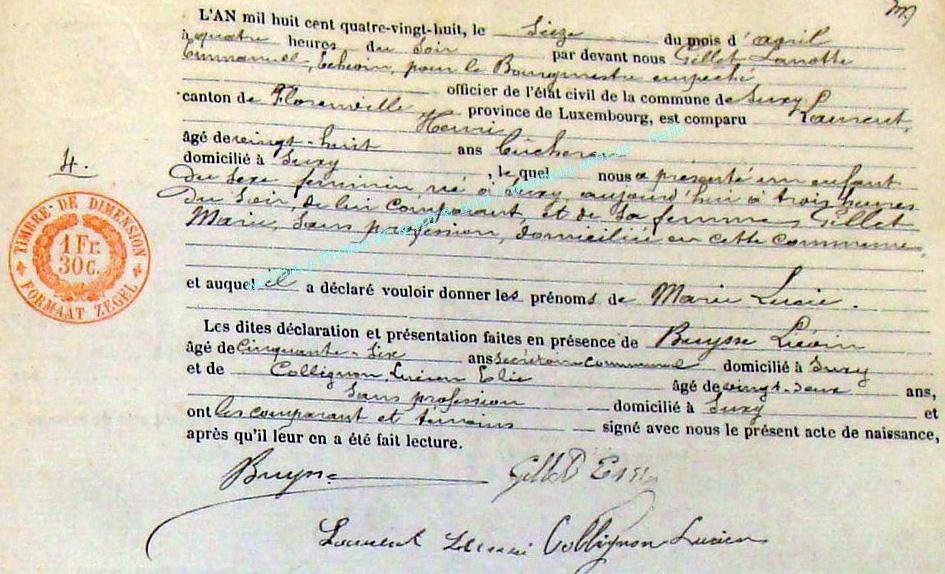 L'AN mil huit cent quatre-vingt-huit, le Seize du mois d'avril
à quatre heures du Soir par devant nous Gillet Lanotte
Emmanuel, Echevin, pour le Bourgmestre empeché
officier de l'état civil de la commune de Suxy
canton de Florenville province de Luxembourg, est comparu Laurent,
Henri
âgé de vingt-huit ans
domicilié à Suxy, le quel nous a présenté un enfant
du Sexe feminin né à Suxy, aujourd'hui à trois heures
du Soir, de lui comparant, et de Sa femme, Gillet
Marie, Sans profession, domiciliée en cette commune
et auquel il a déclaré vouloir donner les prénoms de Marie Lucie.
Les dites déclaration et présentation faites en présence de Buysse Liévin
âgé de Cinquante-Six ans Secrétaire Communal domicilié à Suxy
et de Collignon, Lucien Elie âgé de vingt-deux ans,
Sans profession domicilié à Suxy et
ont les comparant et témoins signé avec nous le présent acte de naissance,
après qu'il leur en a été fait lecture.
4.
TIMBRE DE DIMENSION
1 Fr.
30 c.
FORMAAT ZEGEL
Buysse Gillet
Laurent Henri Collignon Lucien